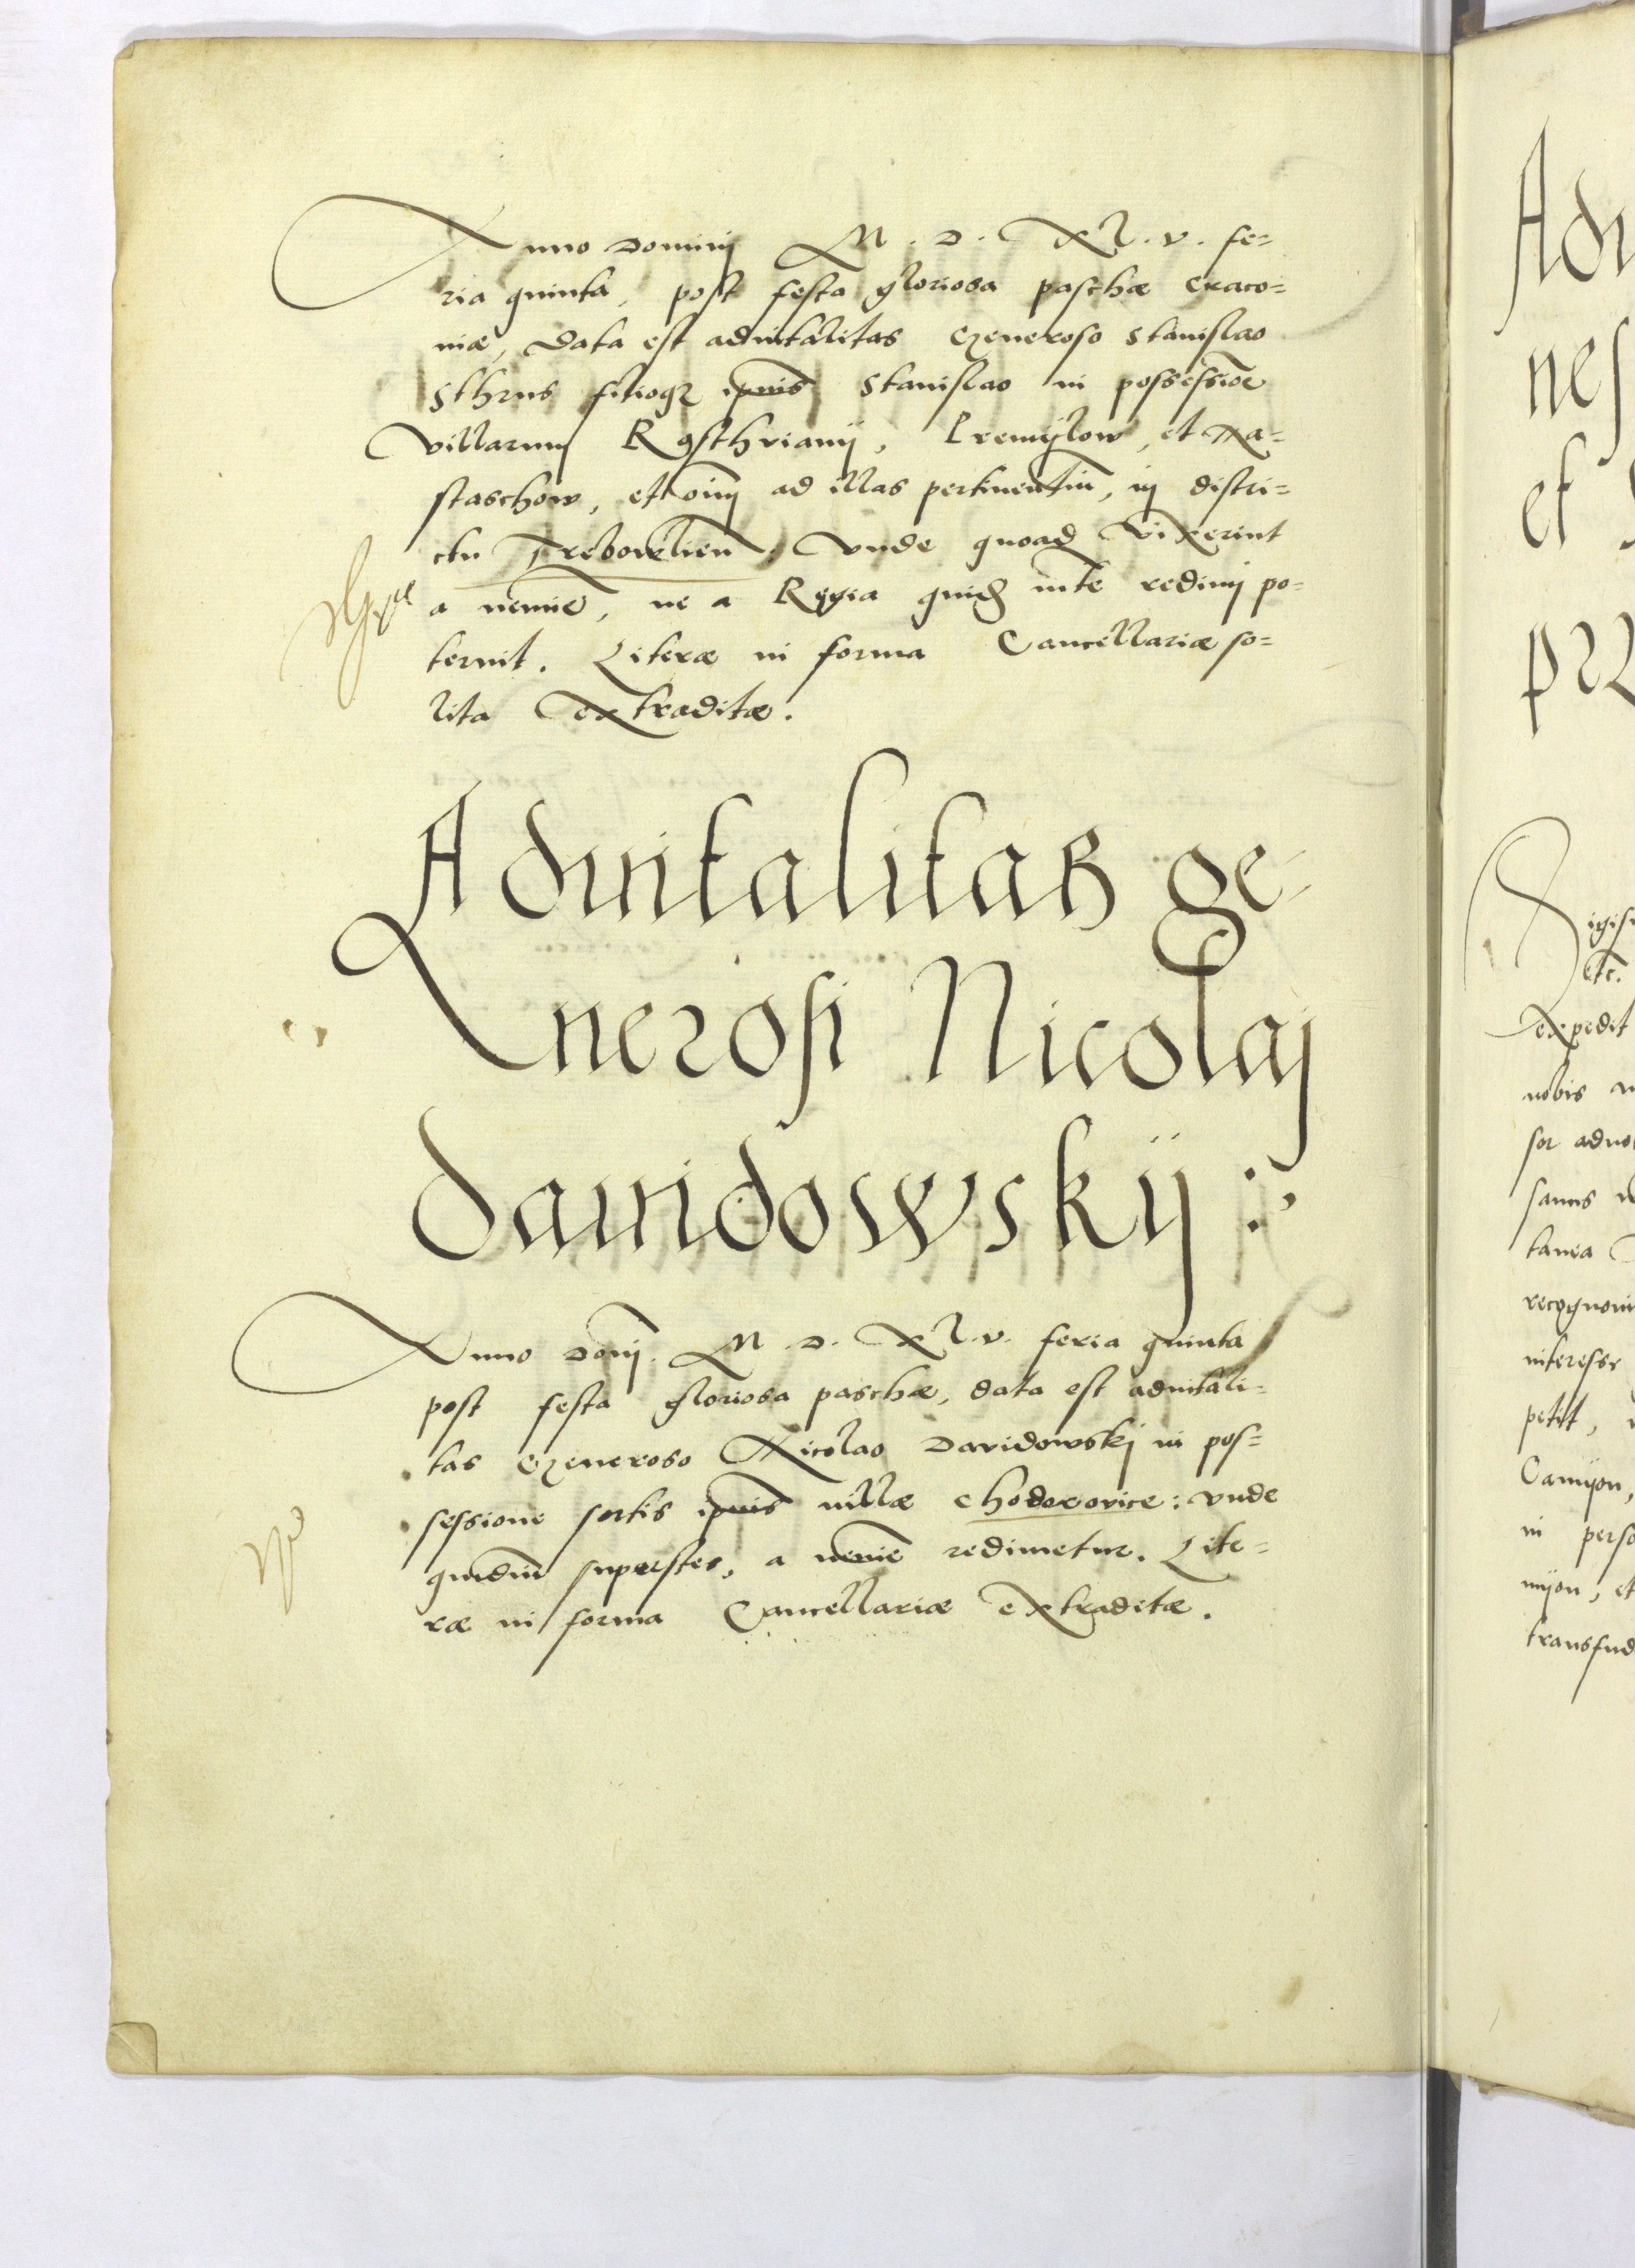 Anno Dominj M. D. XL. v. fe=
ria quinta, post festa gloriosa paschæ Craco=
uiæ, Data est aduitalitas Generoso Stanislao
Sthrus filioq3 ipsius Stanislao in possessiõe
villarum Rosthvianij, kremijlow, et Na=
staschow, et oim̃ ad illas pertinentiũ, in distri=
ctu Trebowlień. Vnde quoad vixerint
a nemiẽ, ne a Regia quidẽ mte redimj po=
teruit. Literæ in forma Cancellariæ so=
lita extraditæ.
Aduitalitas ge=
nerosi Nicolaj
dauidowskij :
Anno Doñj. M. D. XL. v. feria quinta
post festa gloriosa paschæ, data est aduitali=
tas Generoso Nicolao Davidowskj in pos=
sessione sortis ipsius uillæ Chodorovice: vnde
quãdiu superstes, a nemiẽ redimetur. Lite=
ræ in forma Cancellariæ extraditæ.
Adu
nes
et
prz
Sigis
etc.
expedit
nobis
sor aduo
sanus
tanea
recognouit
interesse
petit,
Camijon,
in perso
mijon, et
transfud